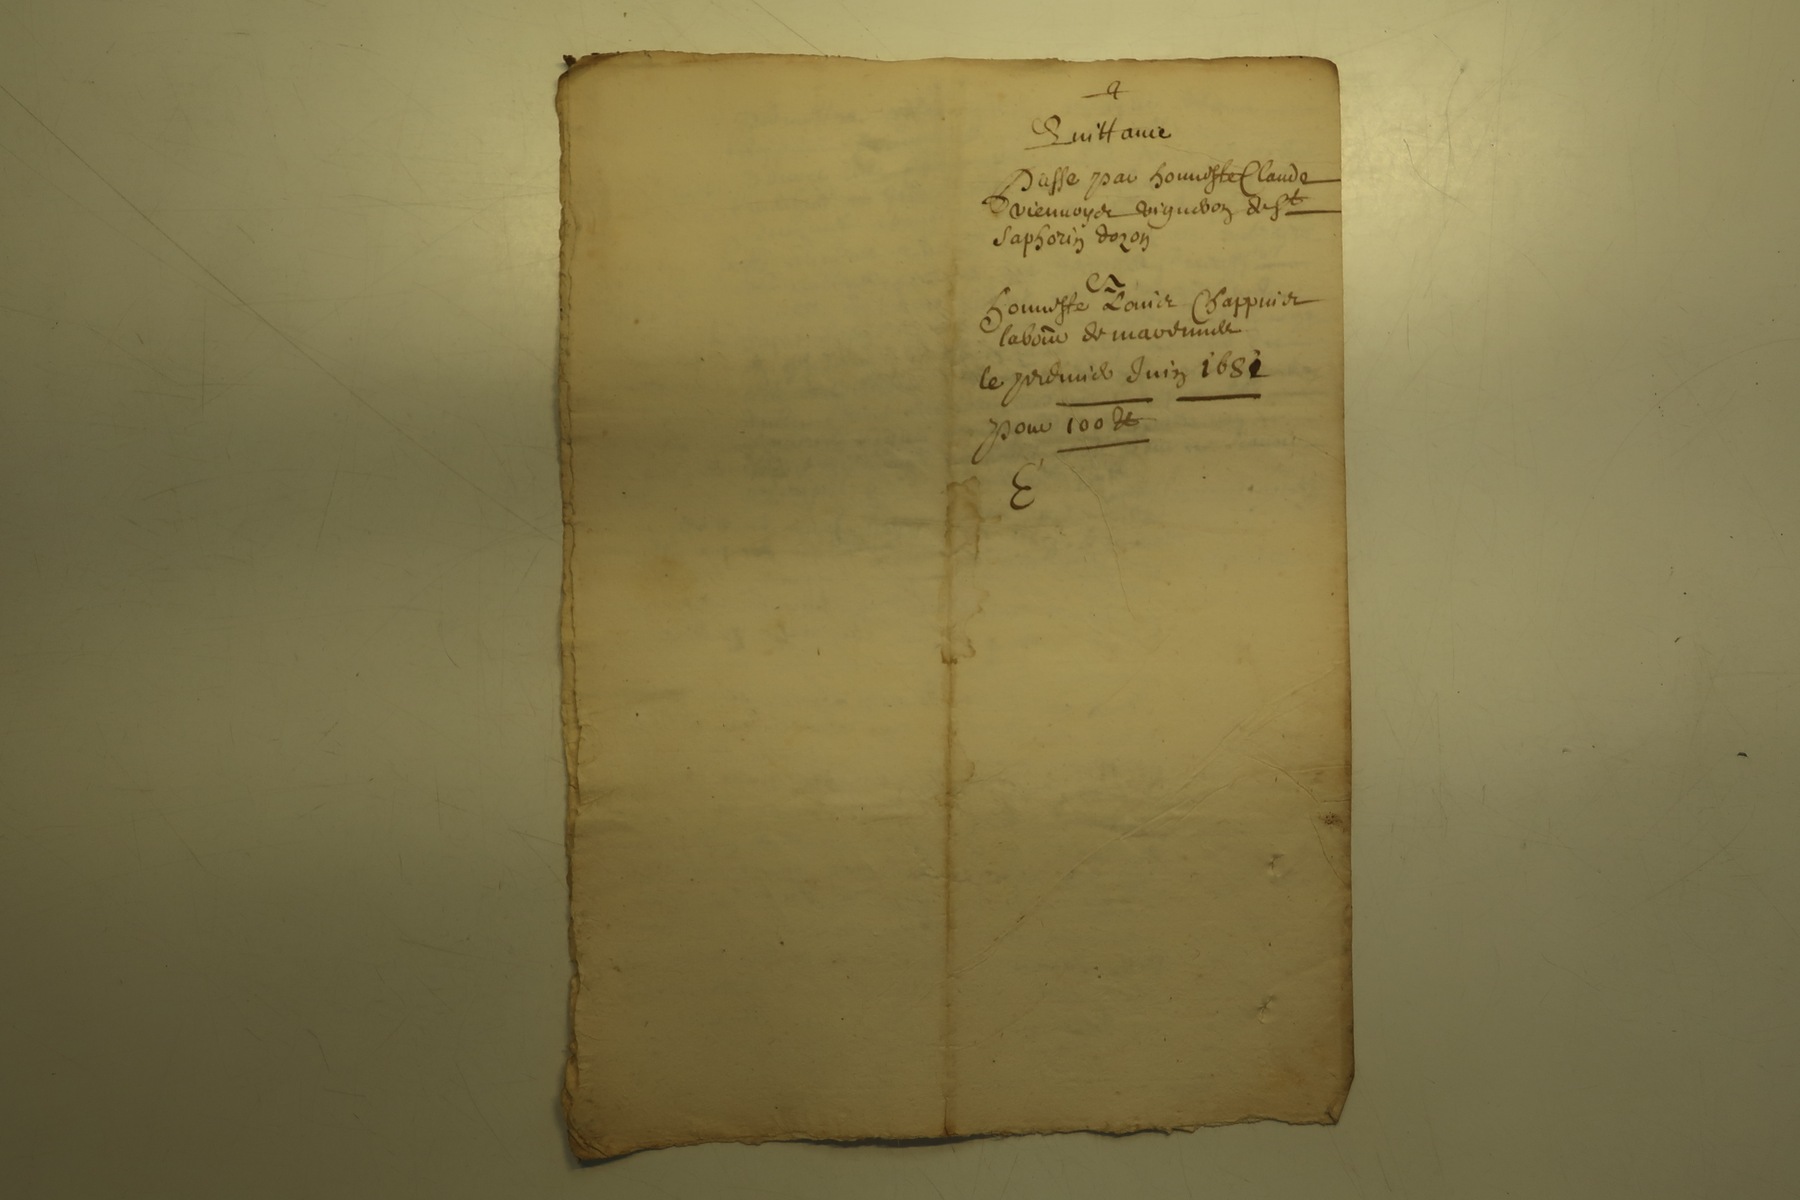 a
Quittance
Passe par honneste Claude
Viennoyer vigneron de St
Saphorin dozon
A
honneste Louis Chappuis
labour de marennes
le premier Juin 1681
pour 100 tt